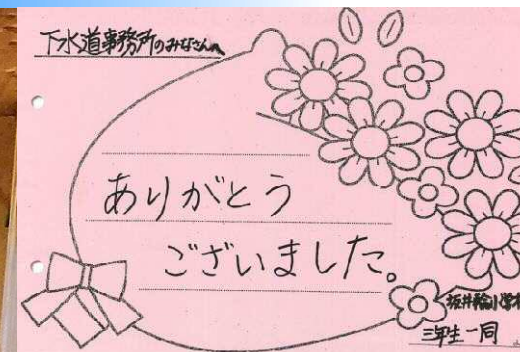 下水道事務所のみなさんへ
ありがとう
ございました。
坂井輪小学校
三年生一同